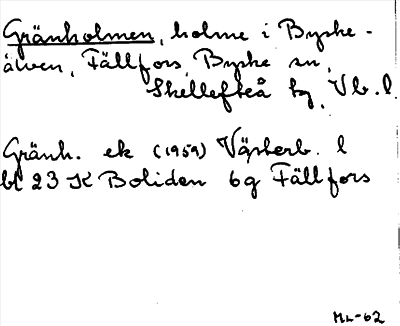 Gränholmen, holme i Byske-
älven, Fällfors, Byske sn,
Skellefteå kg, Vb. l.
Gränh. ek (1959) Västerb. l
bl 23 K Boliden 6g Fällfors
ML-62